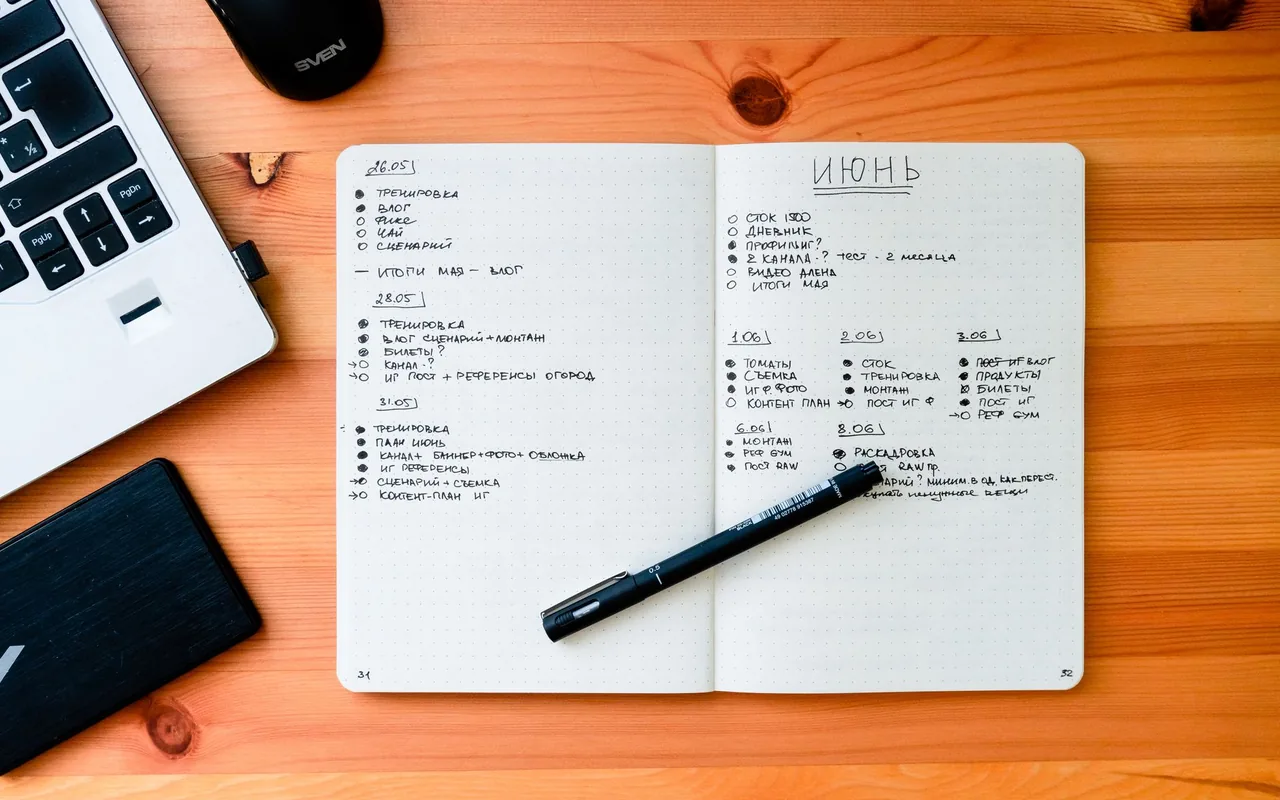 SVEN
½
PgDn
PgUp
26.05
● ТРЕНИРОВКА
● ВЛОГ
○ ФИКС
○ ЧАЙ
○ СЦЕНАРИЙ
— ИТОГИ МАЯ — ВЛОГ
28.05
● ТРЕНИРОВКА
● ВЛОГ СЦЕНАРИЙ + МОНТАЖ
● БИЛЕТЫ?
→○ КАНАЛ -?
→○ ИГ ПОСТ + РЕФЕРЕНСЫ ОГОРОД
31.05
● ТРЕНИРОВКА
● ПЛАН ИЮНЬ
● КАНАЛ + БАННЕР + ФОТО + ОБЛОЖКА
● ИГ РЕФЕРЕНСЫ
→○ СЦЕНАРИЙ + СЪЕМКА
→○ КОНТЕНТ-ПЛАН ИГ
31
ИЮНЬ
○ СТОК 1500
○ ДНЕВНИК
● ПРОФИЛИНГ?
● 2 КАНАЛА -? ТЕСТ - 2 месяца
○ ВИДЕО АЛЕНА
○ ИТОГИ МАЯ
1.06
● ТОМАТЫ
● СЪЕМКА
● ИГ Ф. ФОТО
○ КОНТЕНТ ПЛАН
2.06
● СТОК
● ТРЕНИРОВКА
● МОНТАЖ
→○ ПОСТ ИГ Ф
3.06
● ПОСТ ИГ ВЛОГ
● ПРОДУКТЫ
☒ БИЛЕТЫ
● ПОСТ ИГ
→○ РЕФ GYM
6.06
● МОНТАЖ
● РЕФ GYM
● ПОСТ RAW
8.06
● РАСКАДРОВКА
○ RAW пр.
? МИНИМ. В ОД. КАК ПЕРЕСТ.
ненужные вещи
32
0.5